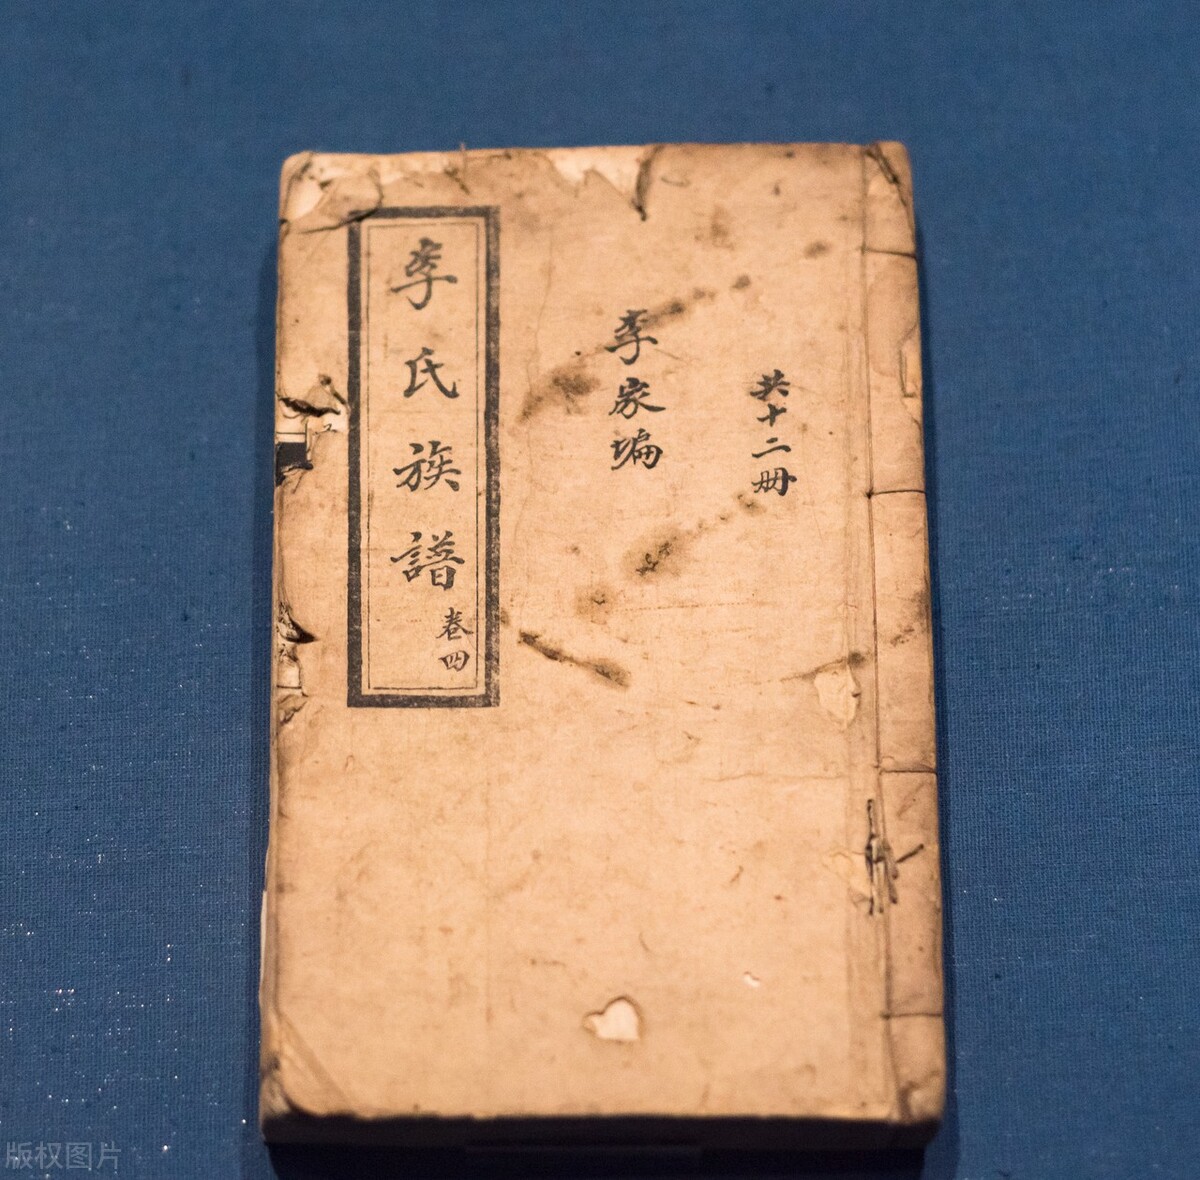 共十二册
李家塥
李氏族譜
卷四
版权图片